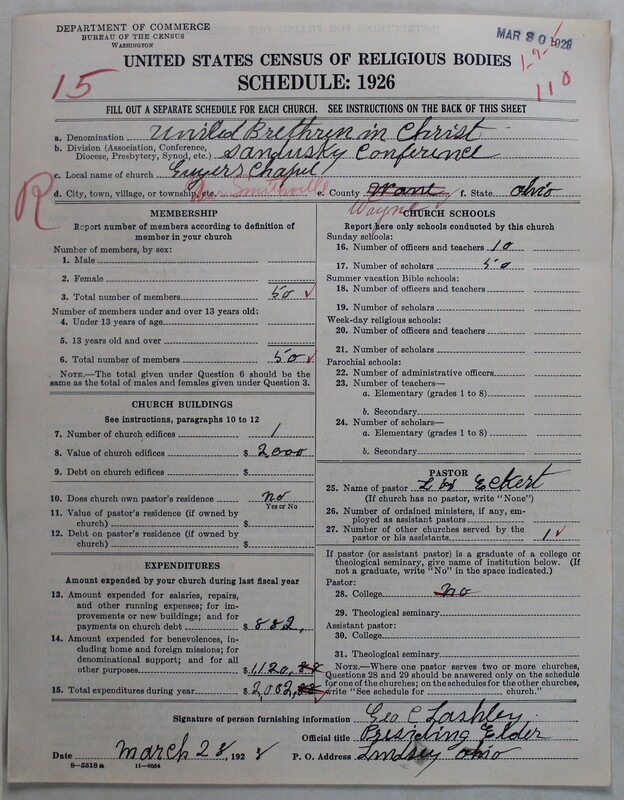 DEPARTMENT OF COMMERCE
BUREAU OF THE CENSUS
WASHINGTON
MAR 30 1928
UNITED STATES CENSUS OF RELIGIOUS BODIES
SCHEDULE: 1926
15
1-9-1
110
FILL OUT A SEPARATE SCHEDULE FOR EACH CHURCH. SEE INSTRUCTIONS ON THE BACK OF THIS SHEET
a. Denomination United Brethren in Christ
b. Division (Association, Conference, Diocese, Presbytery, Synod, etc.) Sandusky Conference
c. Local name of church Guyers Chapel
d. City, town, village, or township Near Smithville e. County Wane Wayne f. State Ohio
R
MEMBERSHIP
Report number of members according to definition of
member in your church
Number of members, by sex:
1. Male
2. Female
3. Total number of members 50 ✓
Number of members under and over 13 years old:
4. Under 13 years of age
5. 13 years old and over
6. Total number of members 50 ✓
NOTE.—The total given under Question 6 should be
the same as the total of males and females given under Question 3.
CHURCH BUILDINGS
See instructions, paragraphs 10 to 12
7. Number of church edifices 1
8. Value of church edifices $ 2000
9. Debt on church edifices $
10. Does church own pastor's residence no
Yes or No
11. Value of pastor's residence (if owned by
church) $
12. Debt on pastor's residence (if owned by
church) $
EXPENDITURES
Amount expended by your church during last fiscal year
13. Amount expended for salaries, repairs,
and other running expenses; for im-
provements or new buildings; and for
payments on church debt $ 882,
14. Amount expended for benevolences, in-
cluding home and foreign missions; for
denominational support; and for all
other purposes $ 1,120,
15. Total expenditures during year $ 2,002,
CHURCH SCHOOLS
Report here only schools conducted by this church
Sunday schools:
16. Number of officers and teachers 10
17. Number of scholars 50
Summer vacation Bible schools:
18. Number of officers and teachers
19. Number of scholars
Week-day religious schools:
20. Number of officers and teachers
21. Number of scholars
Parochial schools:
22. Number of administrative officers
23. Number of teachers—
a. Elementary (grades 1 to 8)
b. Secondary
24. Number of scholars—
a. Elementary (grades 1 to 8)
b. Secondary
PASTOR
25. Name of pastor Eckert
(If church has no pastor, write "None")
26. Number of ordained ministers, if any, em-
ployed as assistant pastors
27. Number of other churches served by the
pastor or his assistants 1 ✓
If pastor (or assistant pastor) is a graduate of a college or
theological seminary, give name of institution below. (If
not a graduate, write "No" in the space indicated.)
Pastor:
28. College No
29. Theological seminary
Assistant pastor:
30. College
31. Theological seminary
NOTE.—Where one pastor serves two or more churches,
Questions 28 and 29 should be answered only on the schedule
for one of the churches; on the schedules for the other churches,
write "See schedule for church."
Signature of person furnishing information Geo C Lashley
Official title Presiding Elder
Date March 28, 1928 P. O. Address Lindsey Ohio
8—5518 a 11—9034